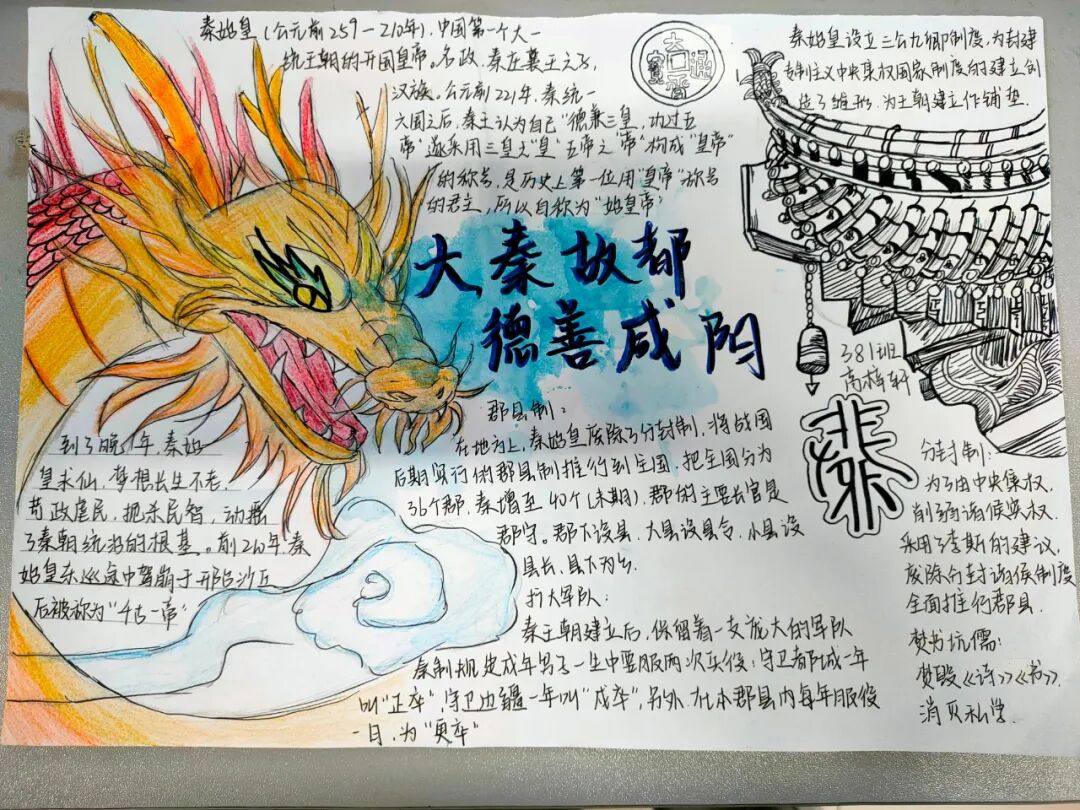 秦始皇（公元前259－210年），中国第一个大一
统王朝的开国皇帝。名政，秦庄襄王之子，
汉族。公元前221年，秦统一
六国之后，秦王认为自己"德兼三皇，功过五
帝"遂采用三皇之"皇"五帝之"帝"构成"皇帝"
的称号，是历史上第一位用"皇帝"称号
的君主，所以自称为"始皇帝"
秦始皇设立三公九卿制度，为封建
专制主义中央集权国家制度的建立创
造了雏形，为王朝建立作铺垫．
大秦故都
德善咸阳
381班
高梓轩
秦
到了晚年，秦始
皇求仙，梦想长生不老，
苛政虐民，扼杀民智，动摇
了秦朝统治的根基。前210年，秦
始皇东巡途中驾崩于邢台沙丘
后被称为"千古一帝"
郡县制：
在地方上，秦始皇废除了分封制，将战国
后期实行的郡县制推行到全国，把全国分为
36个郡，秦增至40个（末期），郡的主要长官是
郡守。郡下设县，大县设县令，小县设
县长，县下为乡．
扩大军队：
秦王朝建立后，保留着一支庞大的军队
秦制规定成年男子一生中要服两次兵役：守卫都城一年
叫"正卒"，守卫边疆一年叫"戍卒"，另外，在本郡县内每年服役
一月，为"更卒"
分封制：
为了由中央集权，
削弱诸侯实权．
采用了李斯的建议，
废除分封诸侯制度
全面推行郡县．
焚书坑儒：
焚毁《诗》《书》．
消灭私学．